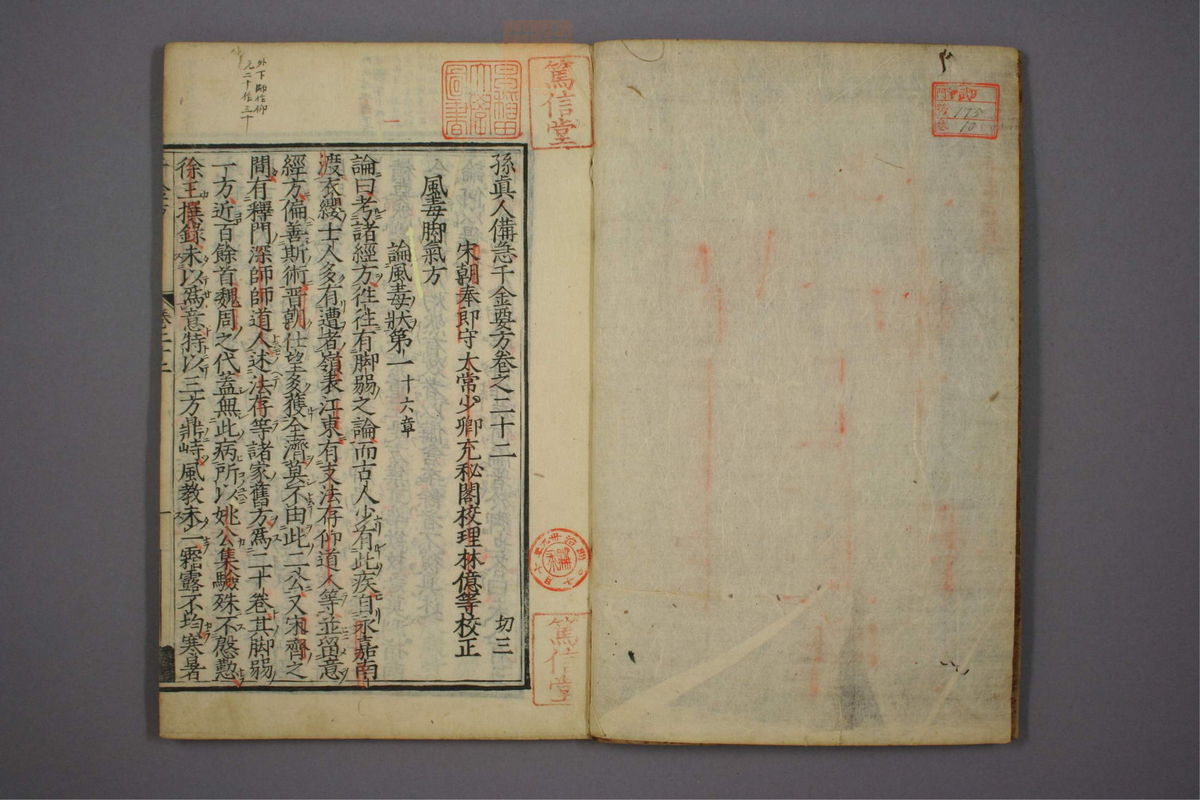 孫真人備急千金要方卷之二十二 切三
宋朝奉郎守太常少卿充秘閣校理林億等校正
風毒脚氣方
論風毒狀第一 十六章
論曰考諸經方往往有脚弱之論而古人少有此疾自永嘉南
渡衣纓士人多有遭者嶺表江東有支法存仰道人等並留意
經方偏善斯術晋朝仕望多獲全濟莫不由此二公又宋齊之
間有釋門深師師道人述法存等諸家舊方爲二十卷其脚弱
一方近百餘首魏周之代蓋無此病所以姚公集驗殊不慇懃
徐王撰錄未以爲意特以三方鼎峙風教未一霧露不均寒暑
篤信堂
篤信堂
外下
元二十作三十
175
10